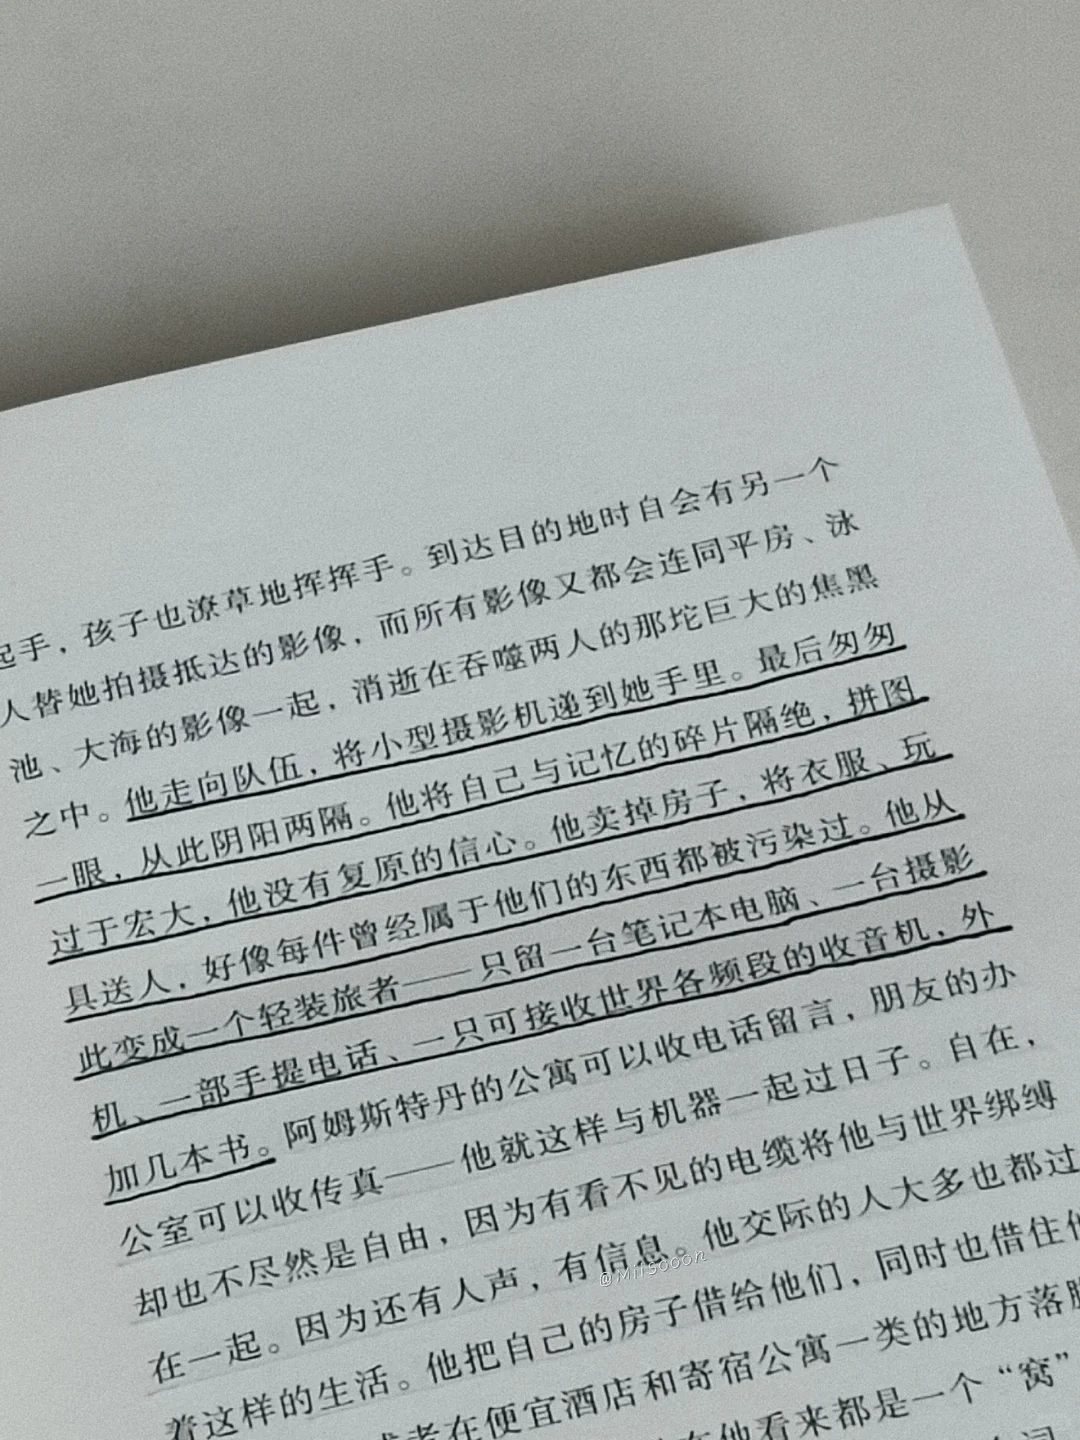 起手，孩子也潦草地挥挥手。到达目的地时自会有另一个
人替她拍摄抵达的影像，而所有影像又都会连同平房、泳
池、大海的影像一起，消逝在吞噬两人的那坨巨大的焦黑
之中。他走向队伍，将小型摄影机递到她手里。最后匆匆
一眼，从此阴阳两隔。他将自己与记忆的碎片隔绝，拼图
过于宏大，他没有复原的信心。他卖掉房子，将衣服、玩
具送人，好像每件曾经属于他们的东西都被污染过。他从
此变成一个轻装旅者——只留一台笔记本电脑、一台摄影
机、一部手提电话、一只可接收世界各频段的收音机，外
加几本书。阿姆斯特丹的公寓可以收电话留言，朋友的办
公室可以收传真——他就这样与机器一起过日子。自在，
却也不尽然是自由，因为有看不见的电缆将他与世界绑缚
在一起。因为还有人声，有信息。他交际的人大多也都过
着这样的生活。他把自己的房子借给他们，同时也借住他
或者在便宜酒店和寄宿公寓一类的地方落脚
在他看来都是一个“窝”
@Mitsooon